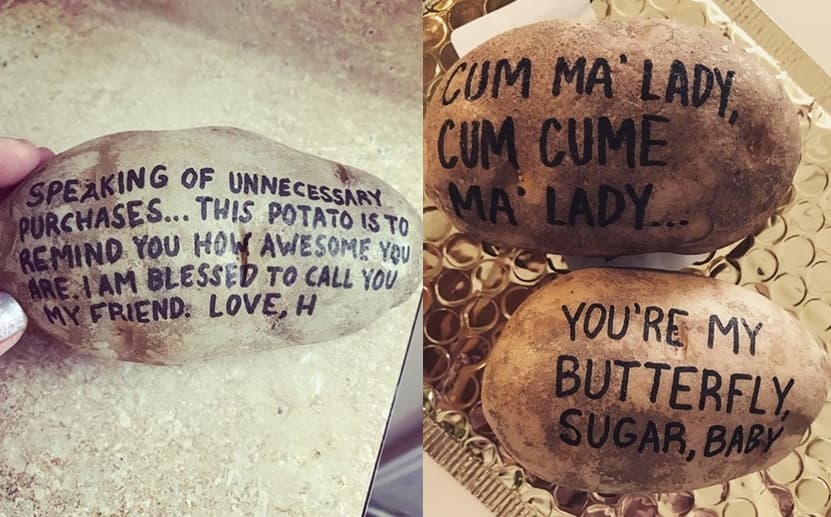 SPEAKING OF UNNECESSARY
PURCHASES... THIS POTATO IS TO
REMIND YOU HOW AWESOME YOU
ARE. I AM BLESSED TO CALL YOU
MY FRIEND. LOVE, H
CUM MA' LADY,
CUM CUME
MA' LADY...
YOU'RE MY
BUTTERFLY,
SUGAR, BABY